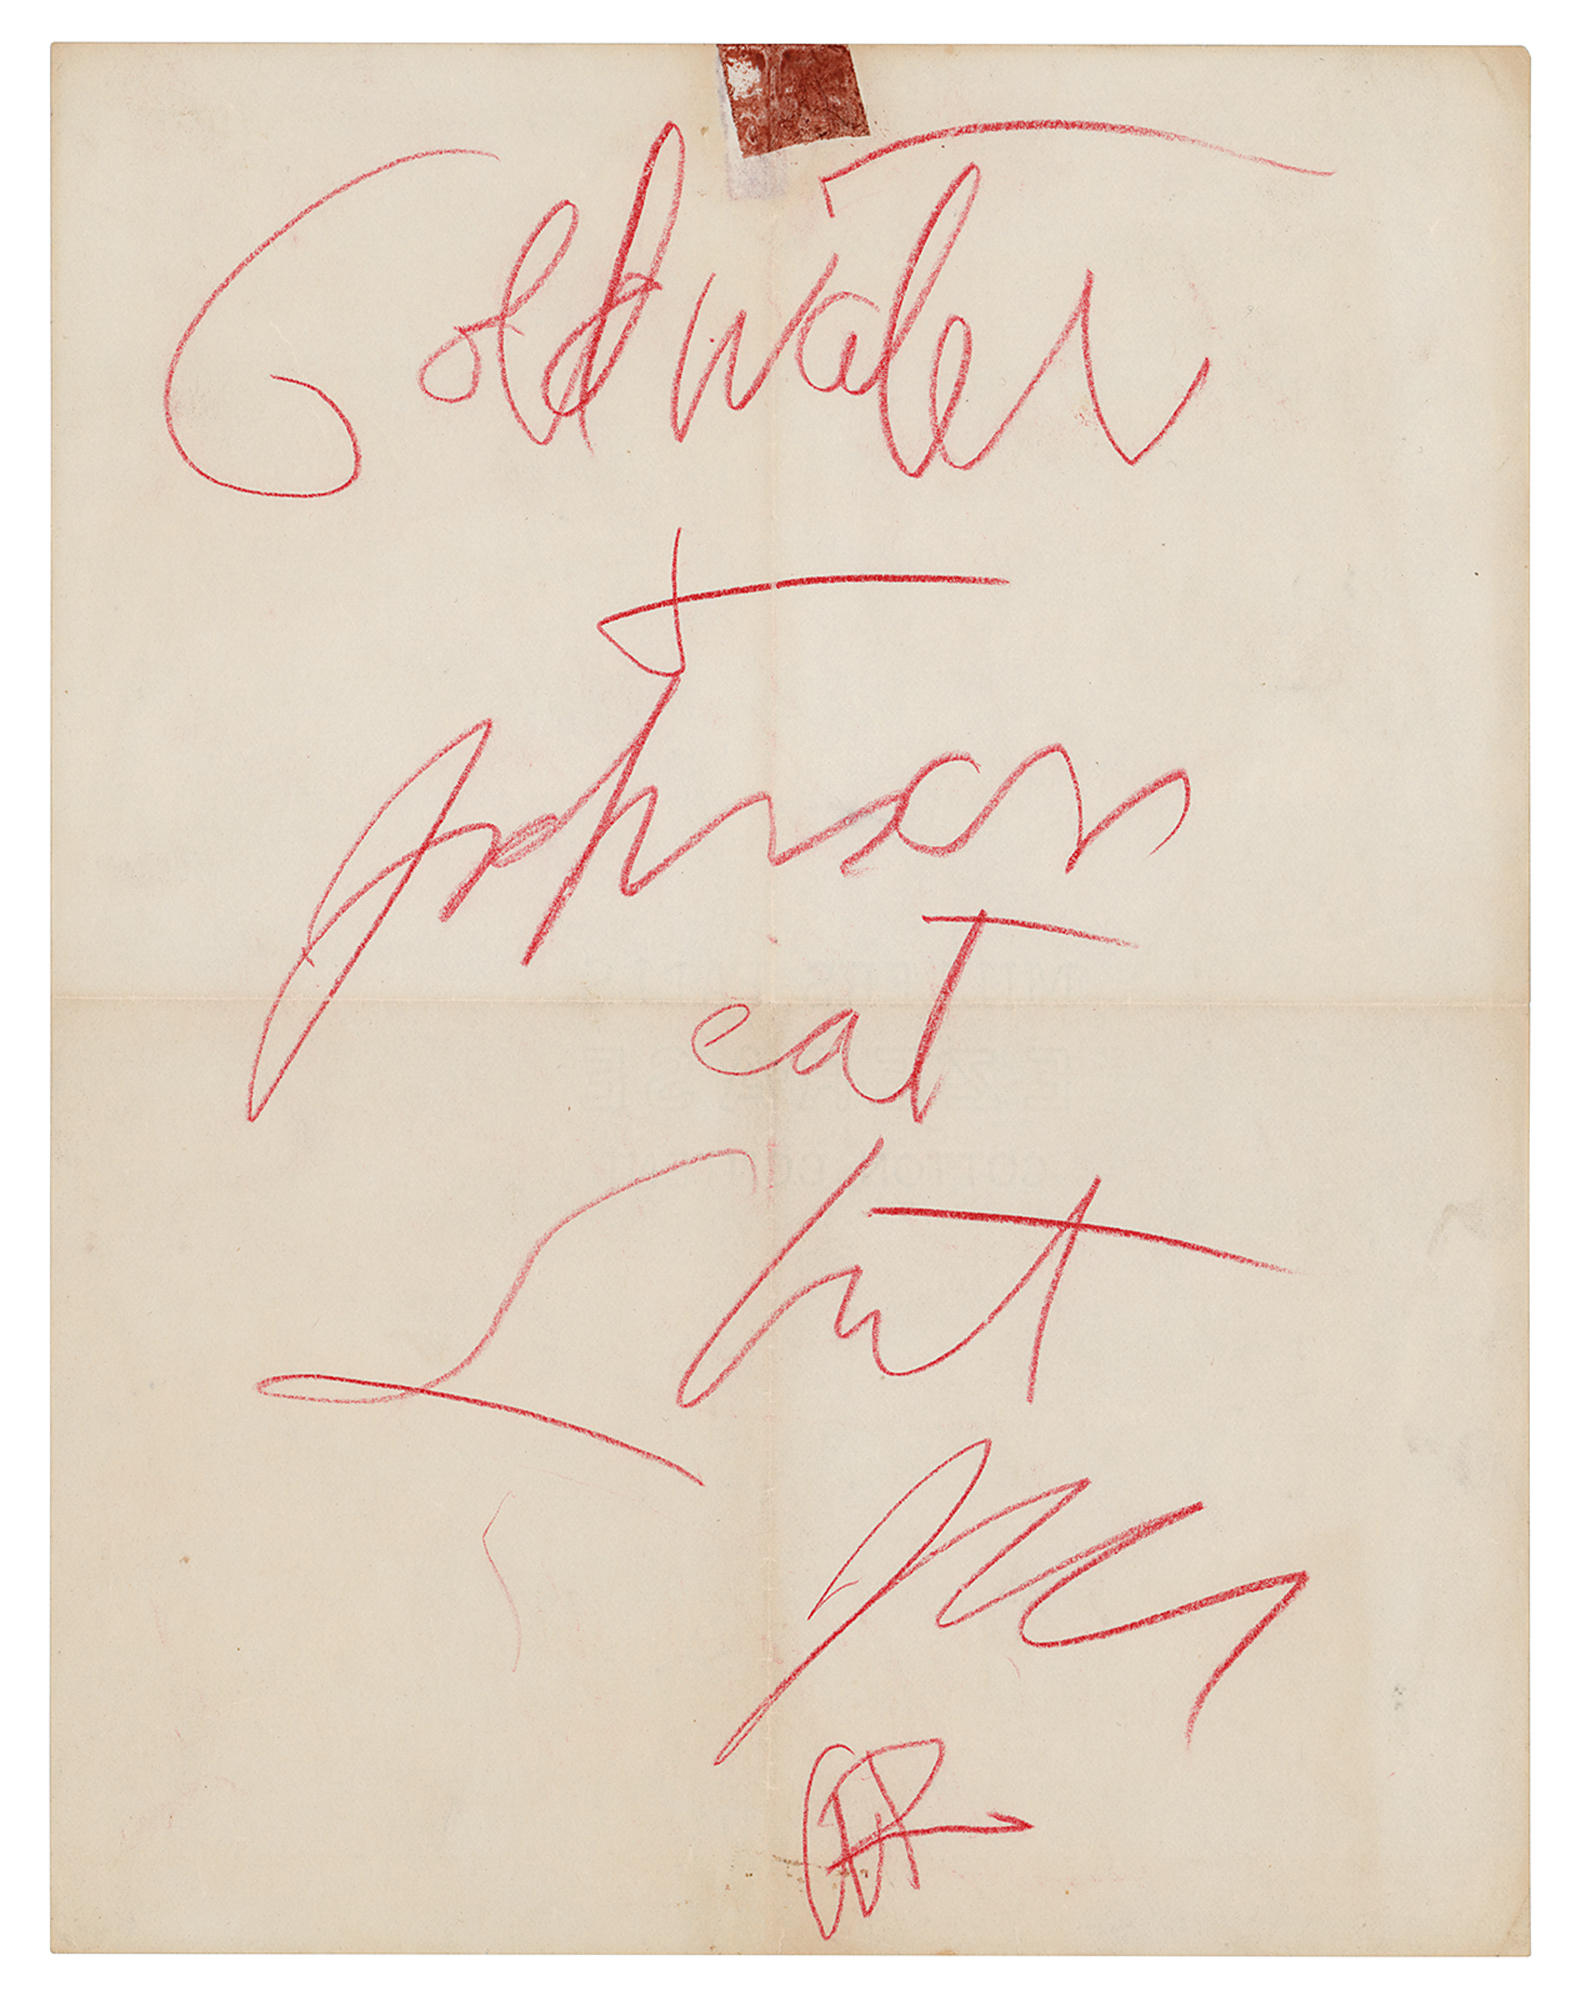 Goldwater
+
Johnson
eat
Shit